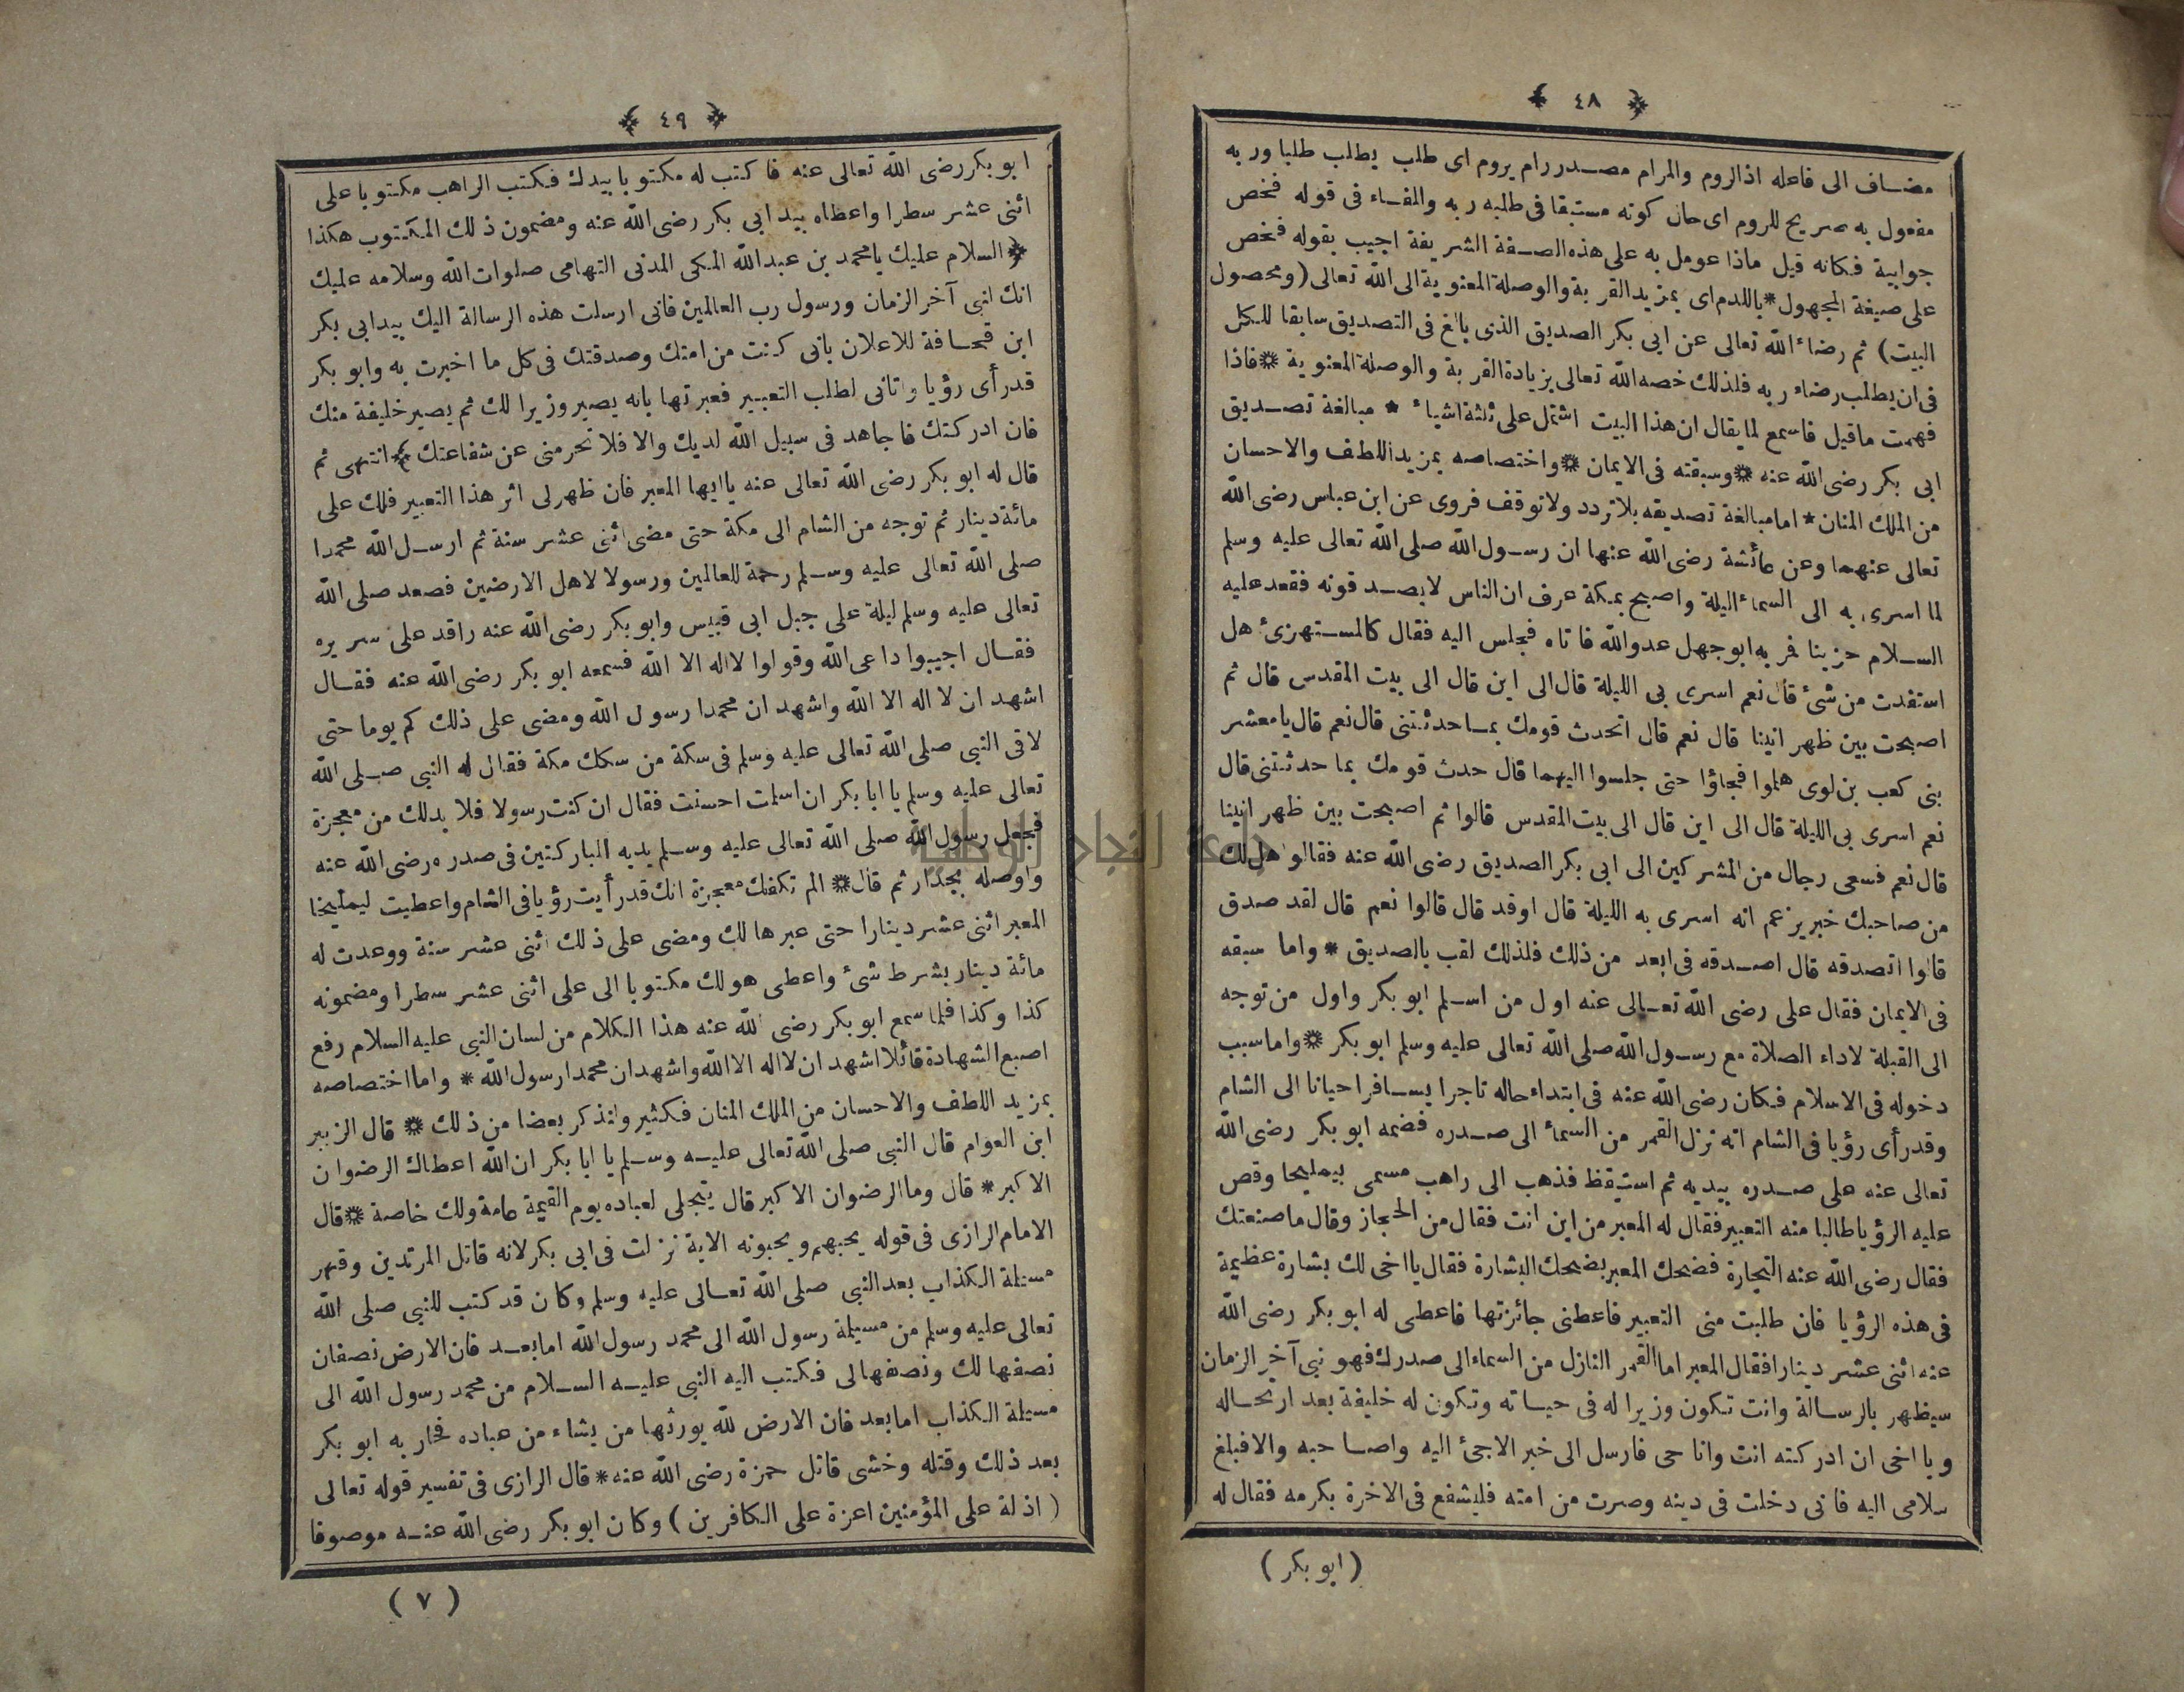 ﴿ ٤٨ ﴾
مضاف الى فاعله اذ الروم والمرام مصدر رام يروم اى طلب يطلب طلبا وربه
مفعول به صريح للروم اى حال كونه مستبقا فى طلبه ربه والفاء فى قوله فخص
جوابية فكانه قيل ماذا عومل به على هذه الصفة الشريفة اجيب بقوله فخص
على صيغة المجهول * باللدم اى بمزيد القربة والوصلة المعنوية الى الله تعالى (ومحصول
البيت) ثم رضاء الله تعالى عن ابى بكر الصديق الذى بالغ فى التصديق سابقا للكل
فى ان يطلب رضاء ربه فلذلك خصه الله تعالى بزيادة القربة والوصلة المعنوية * فاذا
فهمت ماقيل فاسمع لما يقال ان هذا البيت اشتمل على ثلثة اشياء * مبالغة تصديق
ابى بكر رضى الله عنه * وسبقته فى الايمان * واختصاصه بمزيد اللطف والاحسان
من الملك المنان * اما مبالغة تصديقه بلا تردد ولا توقف فروى عن ابن عباس رضى الله
تعالى عنهما وعن عائشة رضى الله عنها ان رسول الله صلى الله تعالى عليه وسلم
لما اسرى به الى السماء ليلة واصبح بمكة عرف ان الناس لا يصدقونه فقعد عليه
السلام حزينا فمر به ابو جهل عدو الله فاتاه فجلس اليه فقال كالمستهزئ هل
استفدت من شئ قال نعم اسرى بى الليلة قال الى اين قال الى بيت المقدس قال ثم
اصبحت بين ظهر انينا قال نعم قال اتحدث قومك بما حدثتنى قال نعم قال يا معشر
بنى كعب بن لوى هلموا فجاؤا حتى جلسوا اليهما قال حدث قومك بما حدثتنى قال
نعم اسرى بى الليلة قال الى اين قال الى بيت المقدس قالوا ثم اصبحت بين ظهر انينا
قال نعم فسعى رجال من المشركين الى ابى بكر الصديق رضى الله عنه فقالوا هل لك
من صاحبك خبر يزعم انه اسرى به الليلة قال اوقد قال قالوا نعم قال لقد صدق
قالوا اتصدقه قال اصدقه فى ابعد من ذلك فلذلك لقب بالصديق * واما سبقه
فى الايمان فقال على رضى الله تعالى عنه اول من اسلم ابو بكر واول من توجه
الى القبلة لاداء الصلاة مع رسول الله صلى الله تعالى عليه وسلم ابو بكر * واما سبب
دخوله فى الاسلام فكان رضى الله عنه فى ابتداء حاله تاجرا يسافر احيانا الى الشام
وقد رأى رؤيا فى الشام انه نزل القمر من السماء الى صدره فضمه ابو بكر رضى الله
تعالى عنه على صدره بيديه ثم استيقظ فذهب الى راهب مسمى بيمليحا وقص
عليه الرؤيا طالبا منه التعبير فقال له المعبر من اين انت فقال من الحجاز وقال ما صنعتك
فقال رضى الله عنه التجارة فضحك المعبر بضحك البشارة فقال يا اخى لك بشارة عظيمة
فى هذه الرؤيا فان طلبت منى التعبير فاعطنى جائزتها فاعطى له ابو بكر رضى الله
عنه اثنى عشر دينارا فقال المعبر اما القمر النازل من السماء الى صدرك فهو نبى آخر الزمان
سيظهر بالرسالة وانت تكون وزيرا له فى حياته وتكون له خليفة بعد ارتحاله
ويا اخى ان ادركته انت وانا حى فارسل الى خبر الاجئ اليه واصاحبه والا فبلغ
سلامى اليه فانى دخلت فى دينه وصرت من امته فليشفع فى الاخرة بكرمه فقال له
(ابو بكر)
﴿ ٤٩ ﴾
ابو بكر رضى الله تعالى عنه فاكتب له مكتوبا بيدك فكتب الراهب مكتوبا على
اثنى عشر سطرا واعطاه بيد ابى بكر رضى الله عنه ومضمون ذلك المكتوب هكذا
﴿ السلام عليك يا محمد بن عبد الله المكى المدنى التهامى صلوات الله وسلامه عليك
انك لنبى آخر الزمان ورسول رب العالمين فانى ارسلت هذه الرسالة اليك بيد ابى بكر
ابن قحافة للاعلان بانى كنت من امتك وصدقتك فى كل ما اخبرت به وابو بكر
قد رأى رؤيا واتانى لطلب التعبير فعبرتها بانه يصير وزيرا لك ثم يصير خليفة منك
فان ادركتك فاجاهد فى سبيل الله لديك والا فلا تحرمنى عن شفاعتك ﴾ انتهى ثم
قال له ابو بكر رضى الله تعالى عنه يا ايها المعبر فان ظهر لى اثر هذا التعبير فلك على
مائة دينار ثم توجه من الشام الى مكة حتى مضى اثنى عشر سنة ثم ارسل الله محمدا
صلى الله تعالى عليه وسلم رحمة للعالمين ورسولا لاهل الارضين فصعد صلى الله
تعالى عليه وسلم ليلة على جبل ابى قبيس وابو بكر رضى الله عنه راقد على سريره
فقال اجيبوا داعى الله وقولوا لا اله الا الله فسمعه ابو بكر رضى الله عنه فقال
اشهد ان لا اله الا الله واشهد ان محمدا رسول الله ومضى على ذلك كم يوما حتى
لاقى النبى صلى الله تعالى عليه وسلم فى سكة من سكك مكة فقال له النبى صلى الله
تعالى عليه وسلم يا ابا بكر ان اسلمت احسنت فقال ان كنت رسولا فلا بد لك من معجزة
فجعل رسول الله صلى الله تعالى عليه وسلم يديه المباركتين فى صدره رضى الله عنه
واوصله بجدار ثم قال * الم تكفك معجزة انك قد رأيت رؤيا فى الشام واعطيت ليمليخا
المعبر اثنى عشر دينارا حتى عبرها لك ومضى على ذلك اثنى عشر سنة ووعدت له
مائة دينار بشرط شئ واعطى هو لك مكتوبا الى على اثنى عشر سطرا ومضمونه
كذا وكذا فلما سمع ابو بكر رضى الله عنه هذا الكلام من لسان النبى عليه السلام رفع
اصبع الشهادة قائلا اشهد ان لا اله الا الله واشهد ان محمدا رسول الله * واما اختصاصه
بمزيد اللطف والاحسان من الملك المنان فكثير ولنذكر بعضا من ذلك * قال الزبير
ابن العوام قال النبى صلى الله تعالى عليه وسلم يا ابا بكر ان الله اعطاك الرضوان
الاكبر * قال وما الرضوان الاكبر قال يتجلى لعباده يوم القيمة عامة ولك خاصة * قال
الامام الرازى فى قوله يحبهم ويحبونه الاية نزلت فى ابى بكر لانه قاتل المرتدين وقهر
مسيلة الكذاب بعد النبى صلى الله تعالى عليه وسلم وكان قد كتب للنبى صلى الله
تعالى عليه وسلم من مسيلمة رسول الله الى محمد رسول الله اما بعد فان الارض نصفان
نصفها لك ونصفها لى فكتب اليه النبى عليه السلام من محمد رسول الله الى
مسيلة الكذاب اما بعد فان الارض لله يورثها من يشاء من عباده فحار به ابو بكر
بعد ذلك وقتله وخشى قاتل حمزة رضى الله عنه * قال الرازى فى تفسير قوله تعالى
(اذلة على المؤمنين اعزة على الكافرين) وكان ابو بكر رضى الله عنه موصوفا
(٧)
جامعة النجاح الوطنية